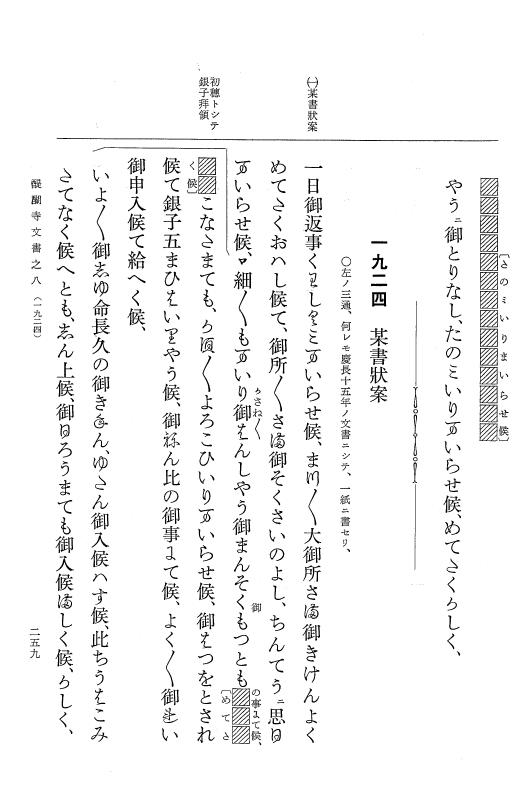 〔さのミいりまいらせ候〕
やうニ御とりなし、たのミいりまいらせ候、めてたくかしく、
一九二四　某書狀案
(一)某書狀案
○左ノ三通、何レモ慶長十五年ノ文書ニシテ、一紙ニ書セリ、
一日御返事くわしくミまいらせ候、まつ〱大御所さま御きけんよく
めてたくおハし候て、御所〱さま御そくさいのよし、ちんてうニ思日
まいらせ候、細〱もまいり御はんしやう御まんそくもつとも
かさね〱
御
の事にて候、
〔めてた
初穗トシテ
銀子拜領
く候〕
こなたまても、かす〱よろこひいりまいらせ候、御はつをとされ
候て銀子五まひはいりやう候、御ねん比の御事にて候、よく〱御れい
御申入候て給へく候、
いよ〱御しゆ命長久の御きねん、ゆたん御入候ハす候、此ちうはこみ
さてなく候へとも、しん上候、御日ろうまても御入候ましく候、かしく、
醍醐寺文書之八（一九二四）
二五九